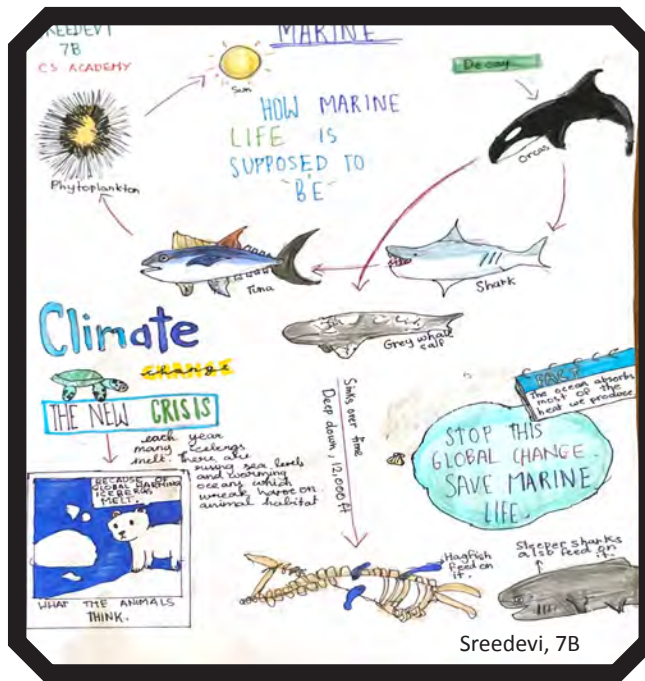 SREEDEVI
7B
CS ACADEMY
MARINE
Sun
Decay
Orcas
Phytoplankton
HOW MARINE
LIFE IS
SUPPOSED TO
"BE"
Tuna
Shark
Grey whale
calf
Climate
change
THE NEW CRISIS
each year
many icebergs
melt. There are
rising sea levels
and warming
oceans which
wreak havoc on
animal habitat
BECAUSE OF
GLOBAL WARMING
ICEBERGS
MELT.
WHAT THE ANIMALS
THINK.
Sinks over time
Deep down, 12,000 ft
FACT
The ocean absorbs
most of the
heat we produce
STOP THIS
GLOBAL CHANGE.
SAVE MARINE
LIFE.
Hagfish
feed on
it.
Sleeper sharks
also feed on it.
Sreedevi, 7B